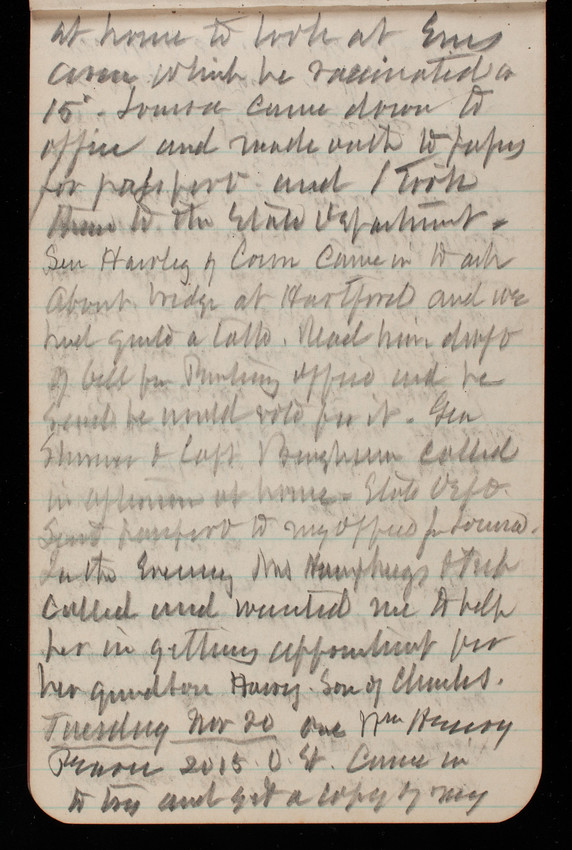 at home to look at Ems
arm which he vaccinated on
15". Louisa came down to
office and made oath to papers
for passport and I took
them to the State Department.
Sen Hawley of Conn Came in to ask
about bridge at Hartford and we
had quite a talk. Read him draft
of bill for Printing office and he
said he would vote for it. Gen
& Capt Bingham called
in afternoon at home. State Dept.
Sent passport to my office for Louisa.
In the Evening Mrs Humphreys
called and wanted me to help
her in getting appointment for
her grandson Harry. Son of Charles.
Tuesday Nov 20 one Wm Henry
2015 O. St. Came in
to try and get a copy of my